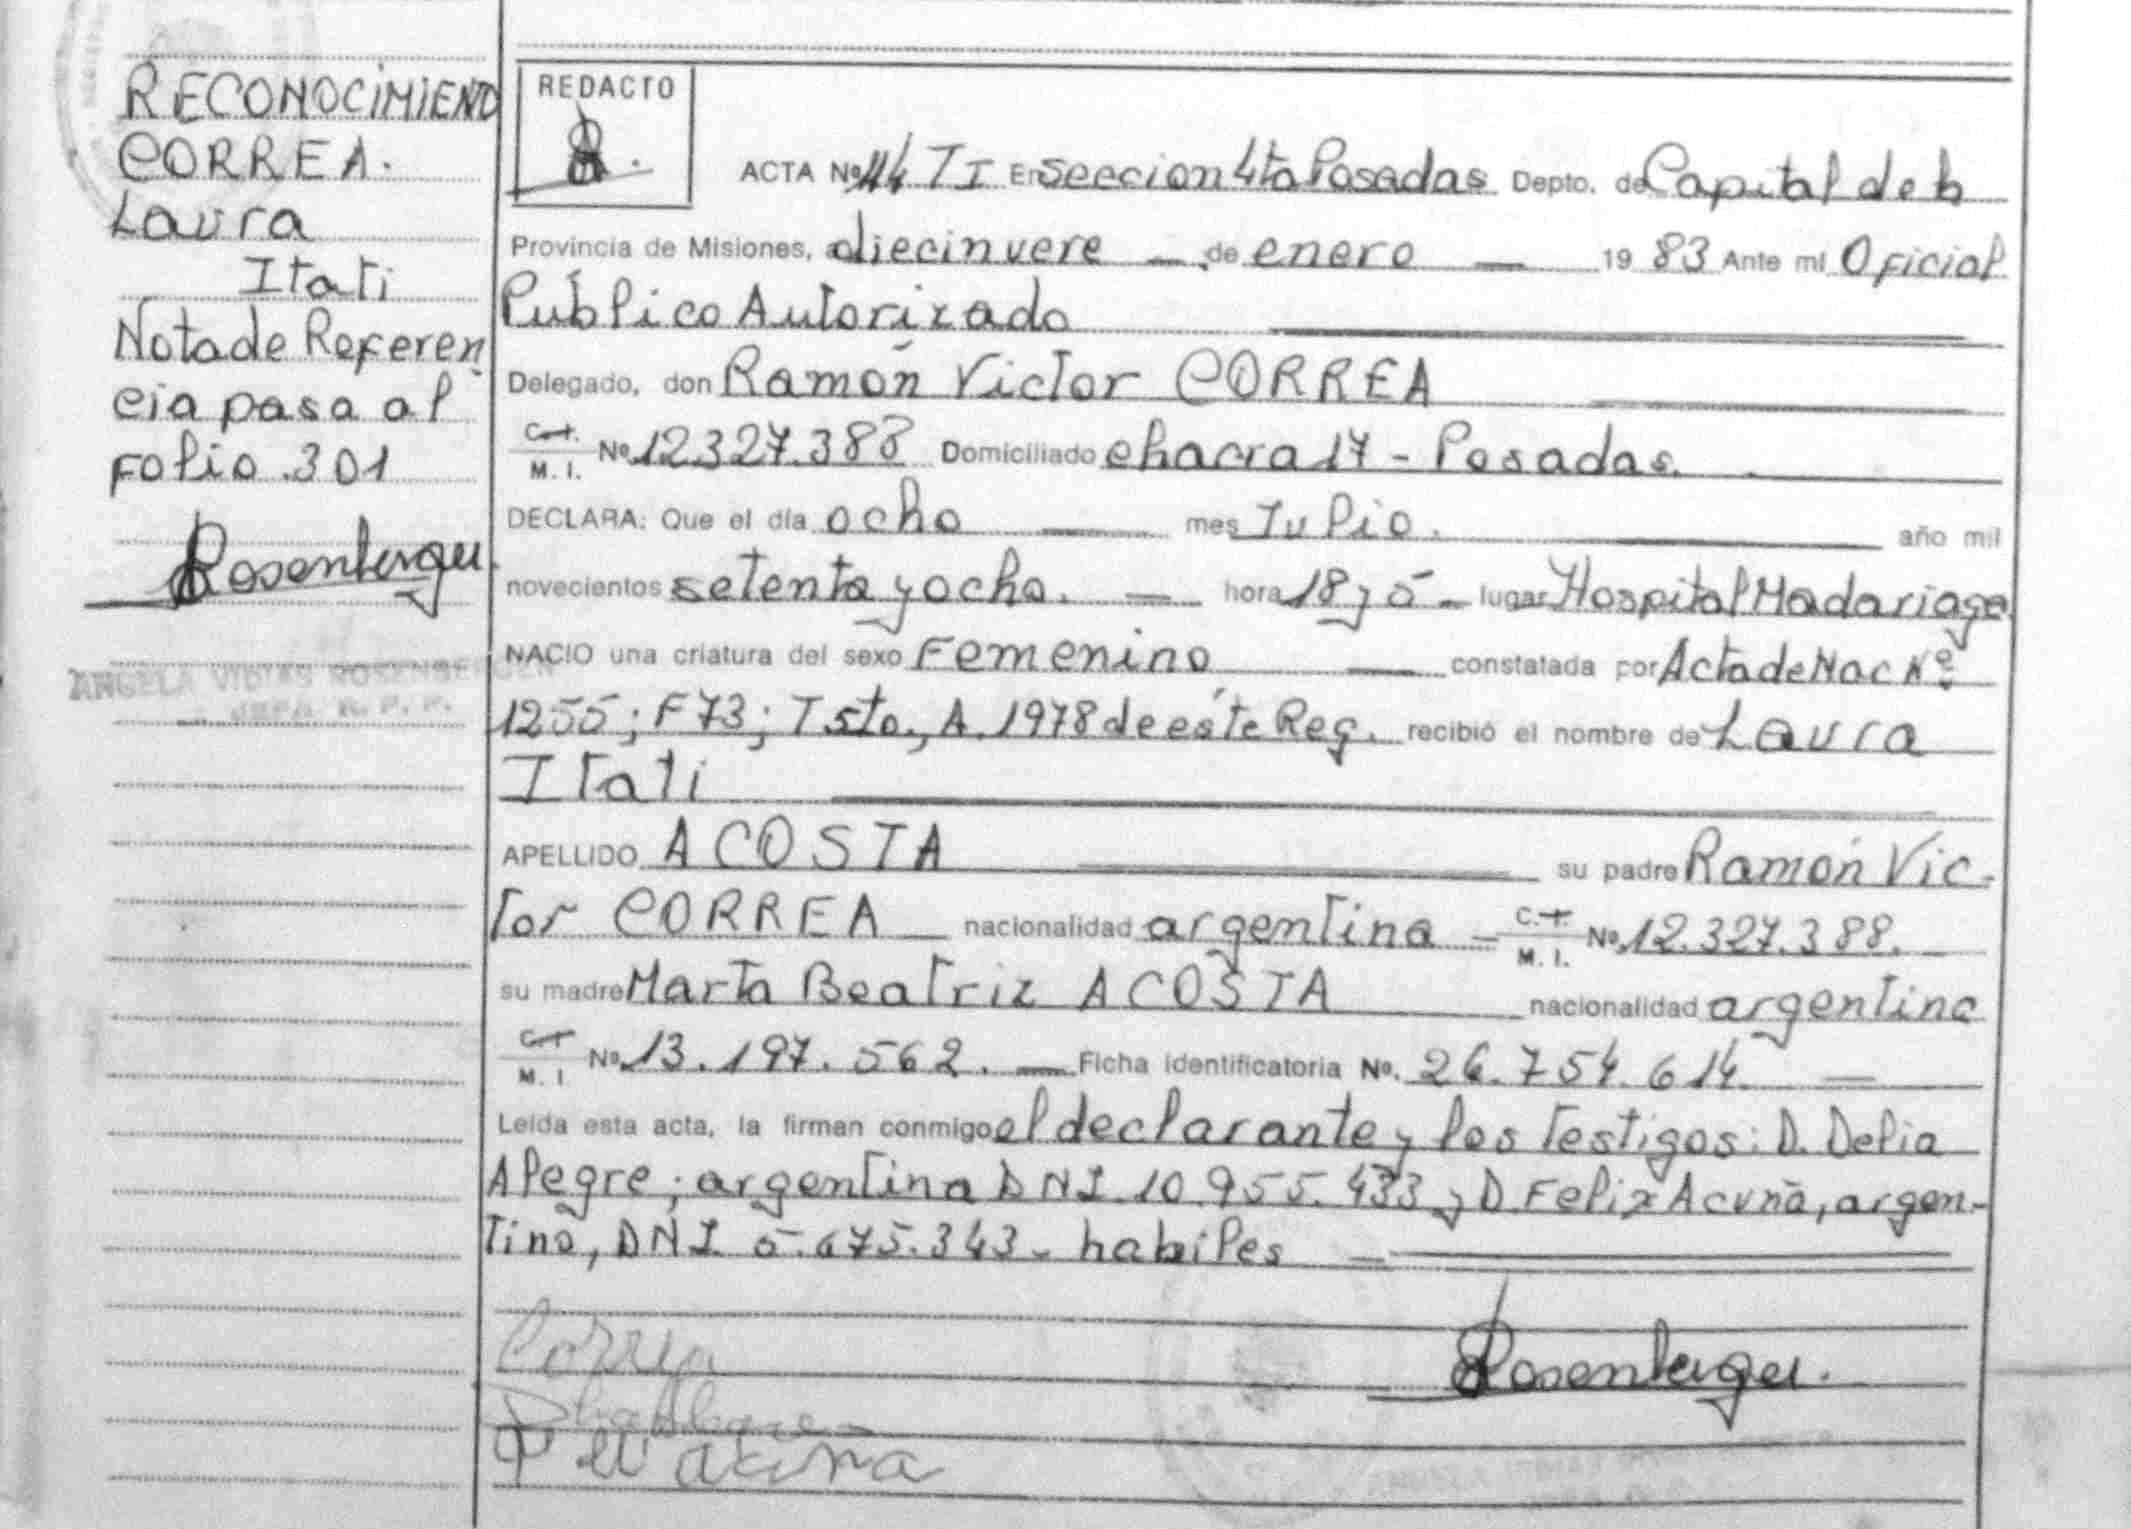 RECONOCIMIENTO
CORREA.
Laura
Itati
Nota de Referen
cia pasa al
Folio .301
Rosenberger
ANGELA VIDIAS ROSENBERGER
JEFA R. P. P.
REDACTO
ACTA Nº 114 T I En Seccion 4ta Posadas Depto. de Capital de la
Provincia de Misiones, diecinueve — de enero — 1983 Ante mi Oficial
Público Autorizado
Delegado, don Ramón Victor CORREA
C.I. M. I. Nº 12.327.388 Domiciliado chacra 17 - Posadas.
DECLARA: Que el día ocho — mes Julio. — año mil
novecientos setenta y ocho. — hora 18 y 5 — lugar Hospital Madariaga
NACIO una criatura del sexo Femenino — constatada por Acta de Nac Nº
1255; F 73; T 5to., A. 1978 de éste Reg. recibió el nombre de Laura
Itati
APELLIDO ACOSTA — su padre Ramón Vic-
tor CORREA — nacionalidad argentina — C.I. M. I. Nº 12.327.388.
su madre Marta Beatriz ACOSTA nacionalidad argentina
C.I. M. I. Nº 13.197.562. — Ficha identificatoria Nº. 26.754.614. —
Leida esta acta, la firman conmigo el declarante y los testigos: D. Delia
Alegre; argentina DNI 10.955.433 y D. Felix Acuña, argen-
tino, DNI 5.675.343- habiles —
Correa
Delia Alegre
Acuña
Rosenberger.
ANGELA VIDIAS